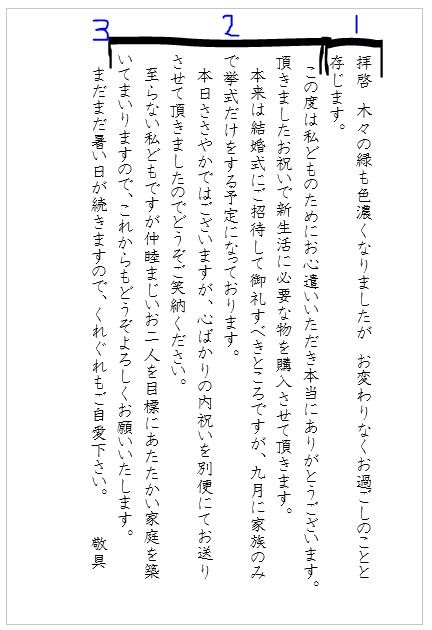 1
2
3
拝啓　木々の緑も色濃くなりましたが　お変わりなくお過ごしのことと
存じます。
この度は私どものためにお心遣いいただき本当にありがとうございます。
頂きましたお祝いで新生活に必要な物を購入させて頂きます。
本来は結婚式にご招待して御礼すべきところですが、九月に家族のみ
で挙式だけをする予定になっております。
本日ささやかではございますが、心ばかりの内祝いを別便にてお送り
させて頂きましたのでどうぞご笑納ください。
至らない私どもですが仲睦まじいお二人を目標にあたたかい家庭を築
いてまいりますので、これからもどうぞよろしくお願いいたします。
まだまだ暑い日が続きますので、くれぐれもご自愛下さい。　　敬具